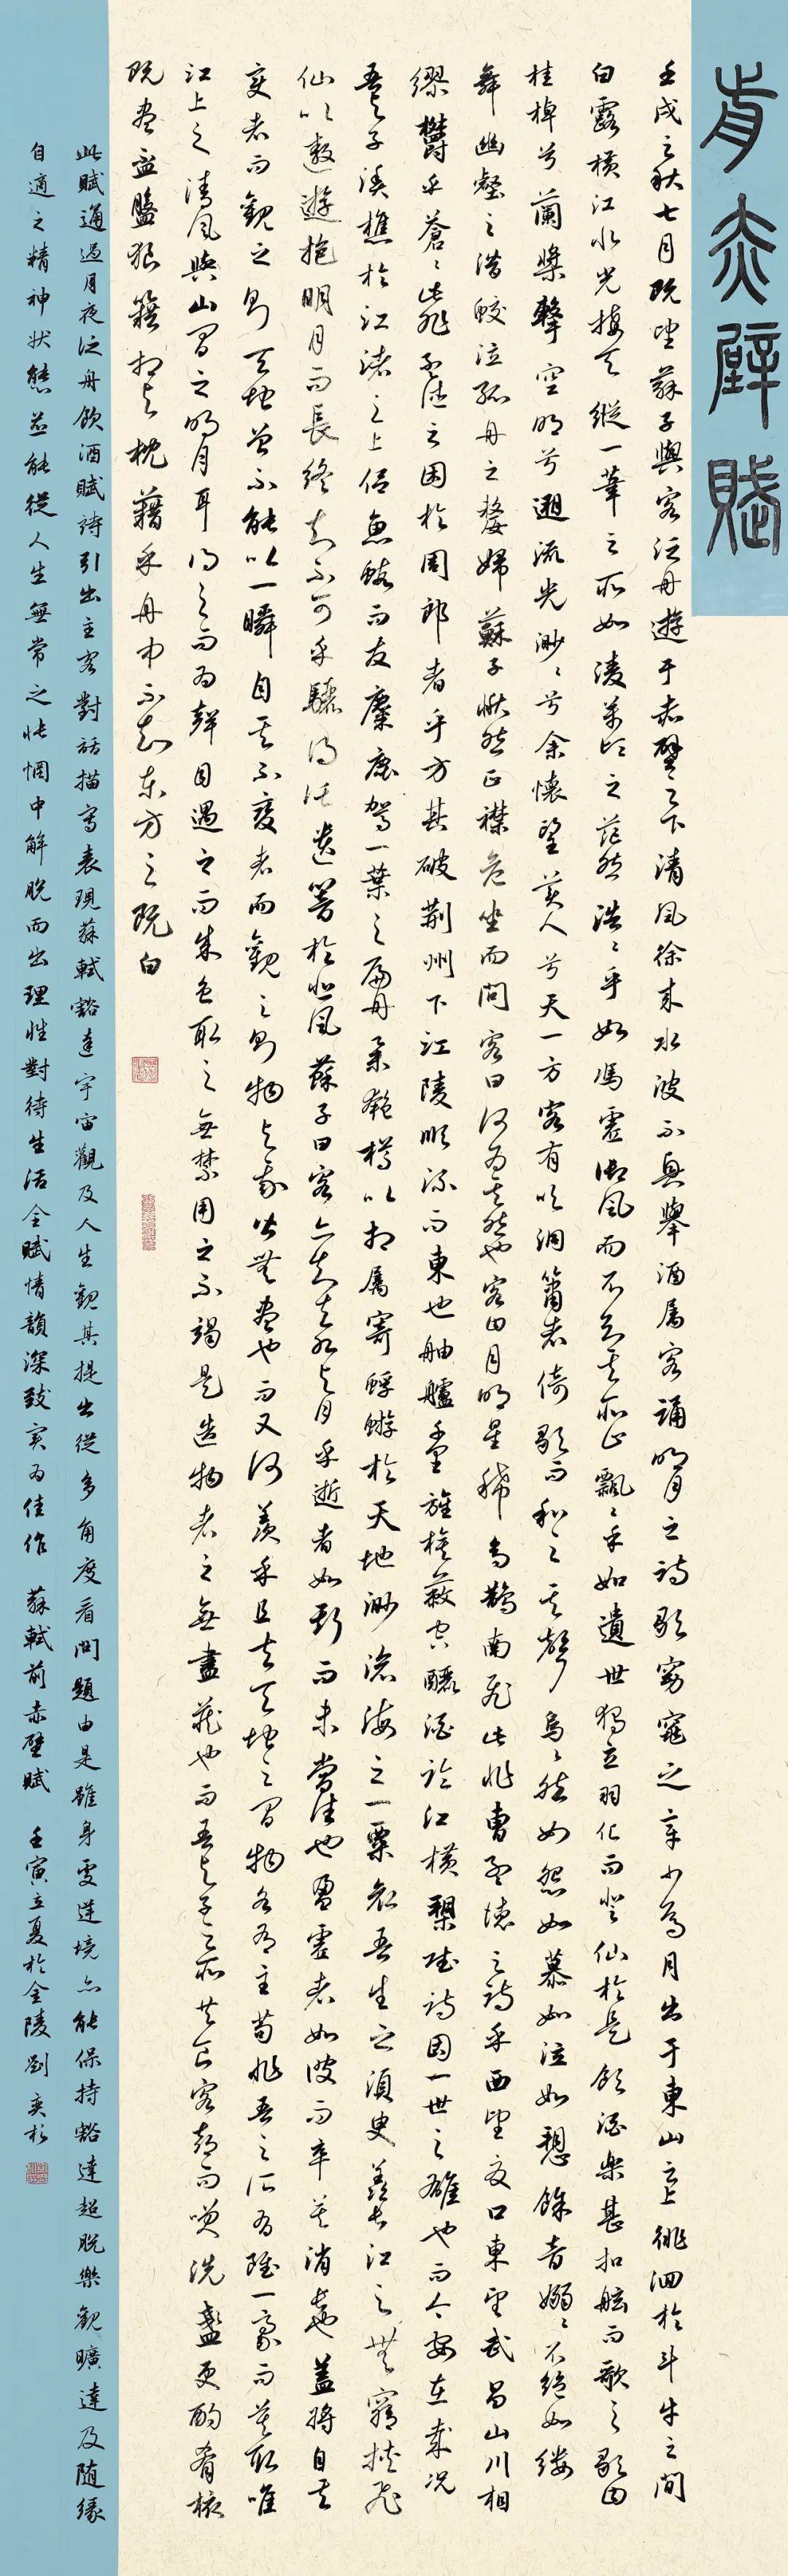 歬赤壁賦
壬戌之秋七月既望蘇子與客泛舟遊于赤壁之下清風徐來水波不興舉酒屬客誦明月之詩歌窈窕之章少焉月出于東山之上徘徊於斗牛之間
白露橫江水光接天縱一葦之所如淩萬頃之茫然浩浩乎如馮虛御風而不知其所止飄飄乎如遺世獨立羽化而登仙於是飲酒樂甚扣舷而歌之歌曰
桂棹兮蘭槳擊空明兮遡流光渺渺兮余懷望美人兮天一方客有吹洞簫者倚歌而和之其聲烏烏然如怨如慕如泣如愬餘音嫋嫋不絕如縷
舞幽壑之潛蛟泣孤舟之嫠婦蘇子愀然正襟危坐而問客曰何為其然也客曰月明星稀烏鵲南飛此非曹孟德之詩乎西望夏口東望武昌山川相
繆鬱乎蒼蒼此非孟德之困於周郎者乎方其破荊州下江陵順流而東也舳艫千里旌旗蔽空釃酒臨江橫槊賦詩固一世之雄也而今安在哉況
吾與子漁樵於江渚之上侶魚蝦而友麋鹿駕一葉之扁舟舉匏樽以相屬寄蜉蝣於天地渺滄海之一粟哀吾生之須臾羨長江之無窮挾飛
仙以遨遊抱明月而長終知不可乎驟得託遺響於悲風蘇子曰客亦知夫水與月乎逝者如斯而未嘗往也盈虛者如彼而卒莫消長也蓋將自其
變者而觀之則天地曾不能以一瞬自其不變者而觀之則物與我皆無盡也而又何羨乎且夫天地之間物各有主苟非吾之所有雖一毫而莫取唯
江上之清風與山間之明月耳得之而為聲目遇之而成色取之無禁用之不竭是造物者之無盡藏也而吾與子之所共食客喜而笑洗盞更酌肴核
既盡杯盤狼籍相與枕藉乎舟中不知東方之既白
此賦通過月夜泛舟飲酒賦詩引出主客對話描寫表現蘇軾豁達宇宙觀及人生觀其提出從多角度看問題由是雖身處逆境亦能保持豁達超脫樂觀曠達及随緣
自適之精神狀態並能從人生無常之悵惘中解脫而出理性對待生活全賦情韻深致实為佳作 蘇軾前赤壁賦 壬寅立夏於金陵劉奕杉